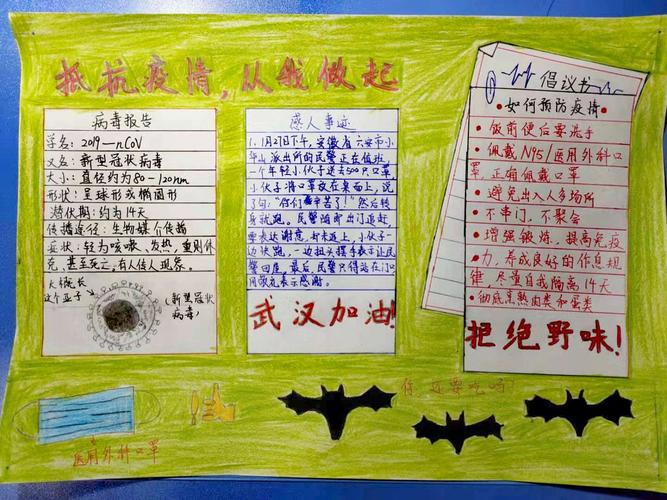 抵抗疫情，从我做起
病毒报告
学名：2019-nCoV
又名：新型冠状病毒
大小：直径约为80-120nm
形状：呈球形或椭圆形
潜伏期：约为14天
传播途径：生物媒介传播
症状：轻为咳嗽、发热，重则休
克、甚至死亡，有人传人现象。
大概长
这个亚子
（新型冠状
病毒）
感人事迹
1.1月27日下午，安徽省六安市小
华山派出所的民警正在值班，
一个年轻小伙子送去500只口罩，
小伙子将口罩放在桌面上，说
了句：“你们辛苦了！”然后转
身就跑。民警随即出门追赶
要表达谢意，却未追上，小伙子一
边状跑，一边扭头摆手表示让民
警回屋，最后，民警只得站在门口
用敬礼表示感谢。
武汉加油！
倡议书
如何预防疫情
饭前便后要洗手
佩戴N95/医用外科口
罩，正确佩戴口罩
避免出入人多场所
不串门，不聚会
增强锻炼，提高免疫
力，养成良好的作息规
律，尽量自我隔离14天
彻底煮熟肉类和蛋类
拒绝野味！
你还要吃吗？
医用外科口罩